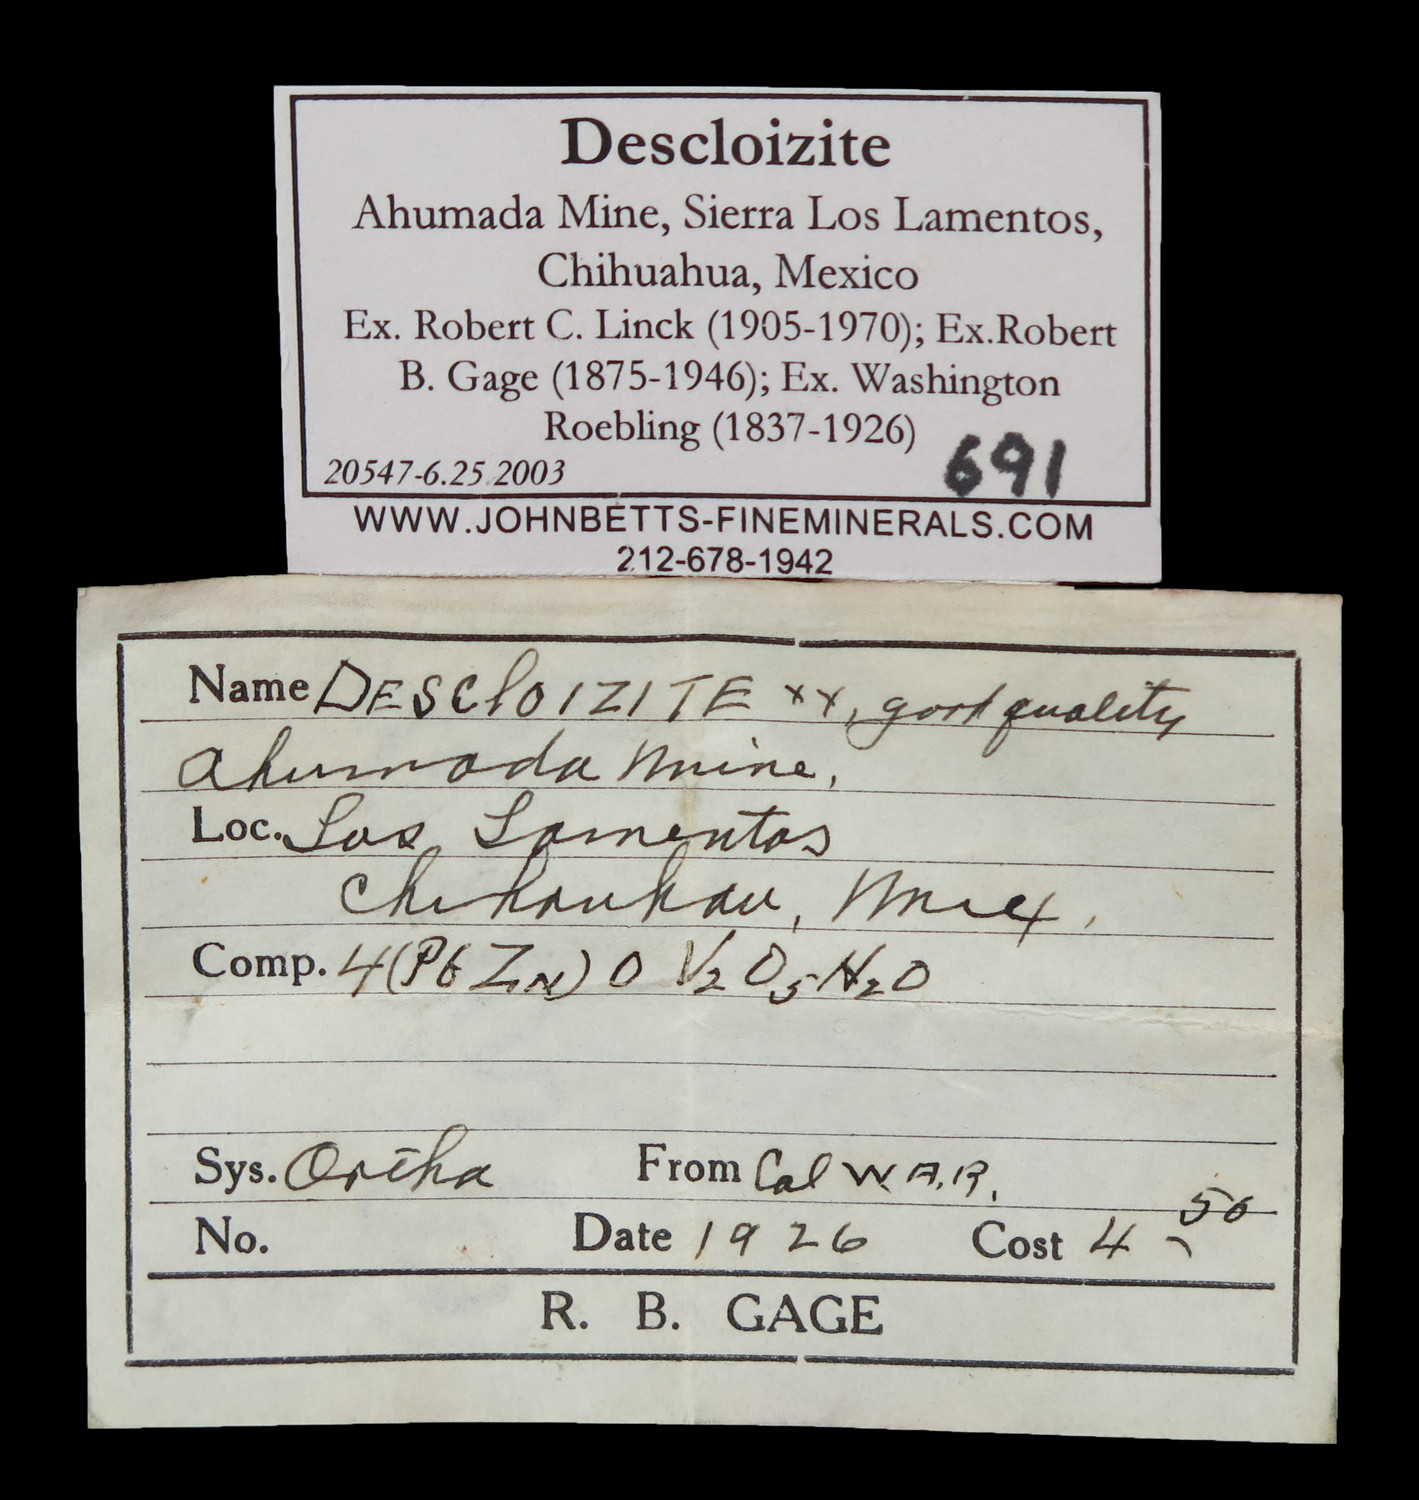 Descloizite
Ahumada Mine, Sierra Los Lamentos,
Chihuahua, Mexico
Ex. Robert C. Linck (1905-1970); Ex.Robert
B. Gage (1875-1946); Ex. Washington
Roebling (1837-1926)
20547-6.25.2003 691
WWW.JOHNBETTS-FINEMINERALS.COM
212-678-1942
Name DESClOIZITE xx, good quality
Ahumada Mine,
Loc. Los Lamentos
Chihauhau, Mex.
Comp. 4(Pb Zn) O V2 O5 H2O
Sys. Ortho From Col W.A.R.
No. Date 1926 Cost 4 50
R. B. GAGE